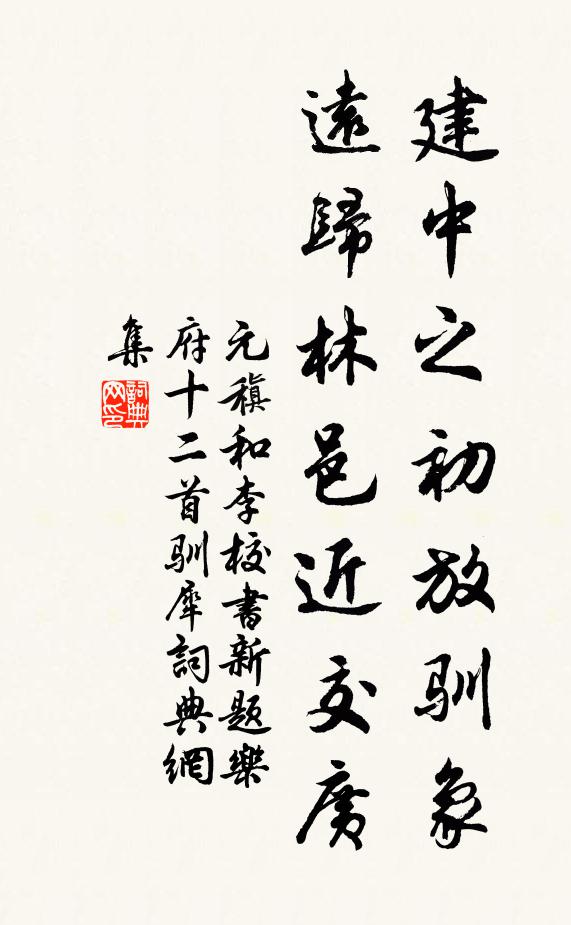 建中之初放驯象
遠歸林邑近交廣
元稹和李校書新题樂
府十二首驯犀詞典網
集
詞典
网印